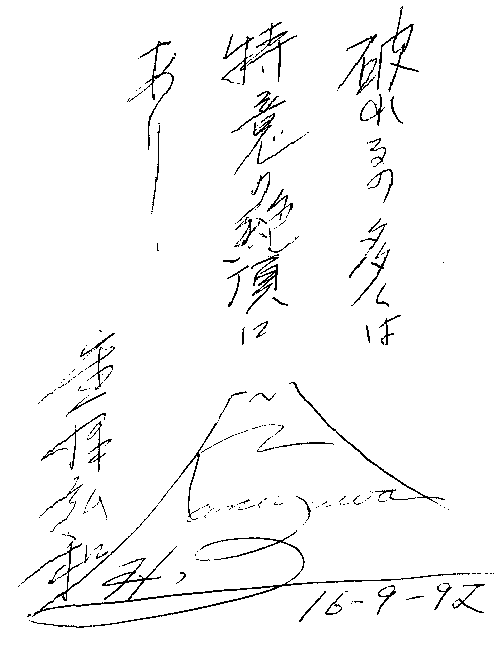 破れるの多くは
特意の絶頂に
あり
金澤弘和
Kanazawa
16-9-92